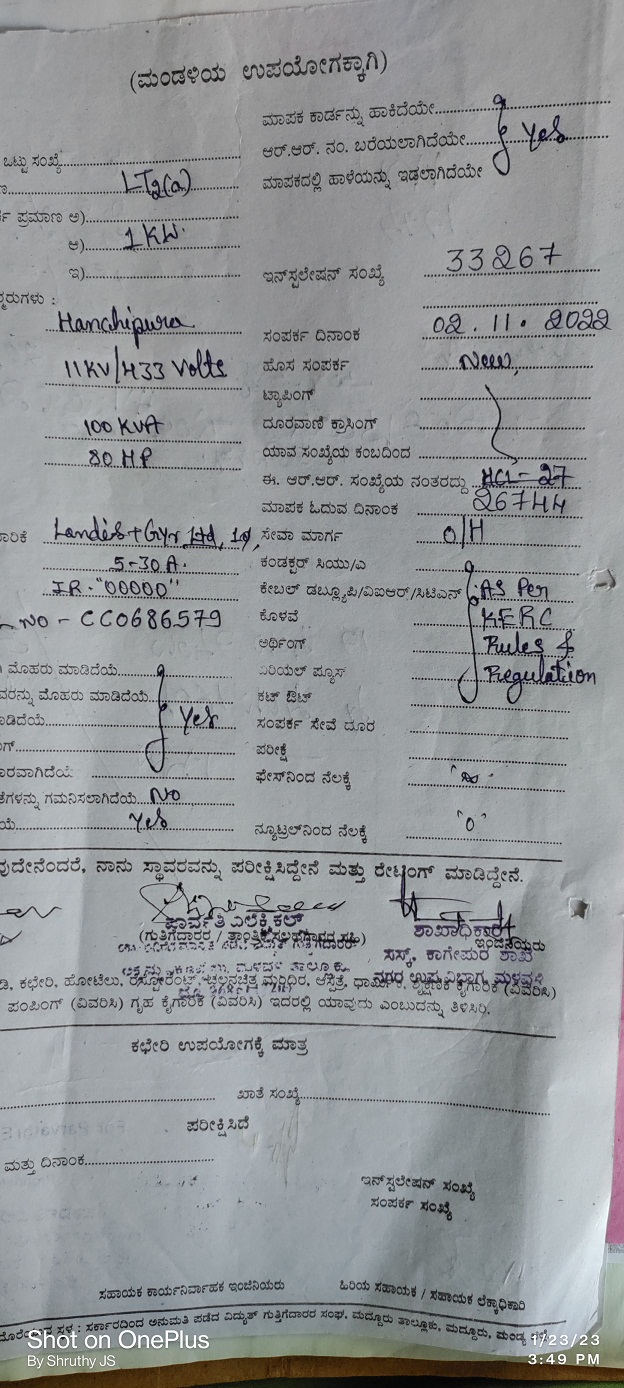 (ಮಂಡಳಿಯ ಉಪಯೋಗಕ್ಕಾಗಿ)
ಮಾಪಕ ಕಾರ್ಡನ್ನು ಹಾಕಿದೆಯೇ
ಒಟ್ಟು ಸಂಖ್ಯೆ ಆರ್.ಆರ್. ನಂ. ಬರೆಯಲಾಗಿದೆಯೇ Yes
LT2(a) ಮಾಪಕದಲ್ಲಿ ಹಾಳೆಯನ್ನು ಇಡಲಾಗಿದೆಯೇ
ಪ್ರಮಾಣ ಅ)
ಆ) 1 KW.
ಇ) ಇನ್‌ಸ್ಟಲೇಷನ್ ಸಂಖ್ಯೆ 33267
Hanchipura ಸಂಪರ್ಕ ದಿನಾಂಕ 02.11.2022
11KV/433 Volts ಹೊಸ ಸಂಪರ್ಕ New,
ಟ್ಯಾಪಿಂಗ್
100 KVA ದೂರವಾಣಿ ಕ್ರಾಸಿಂಗ್
80 HP ಯಾವ ಸಂಖ್ಯೆಯ ಕಂಬದಿಂದ
ಈ. ಆರ್.ಆರ್. ಸಂಖ್ಯೆಯ ನಂತರದ್ದು HCL-27
ಮಾಪಕ ಓದುವ ದಿನಾಂಕ 26744
Landis+Gyr Ltd, ಸೇವಾ ಮಾರ್ಗ O/H
5-30A. ಕಂಡಕ್ಟರ್ ಸಿಯು/ಎ
IR-"00000" ಕೇಬಲ್ ಡಬ್ಲ್ಯೂಪಿ/ವಿಐಆರ್/ಸಿಟಿಎನ್ AS Per
NO - CC0686579 ಕೊಳವೆ KERC
ಅರ್ಥಿಂಗ್ Rules &
ಮೊಹರು ಮಾಡಿದೆಯೆ ಏರಿಯಲ್ ಫ್ಯೂಸ್ Regulation
ಮೊಹರು ಮಾಡಿದೆಯೆ ಕಟ್ ಔಟ್
Yes ಸಂಪರ್ಕ ಸೇವೆ ದೂರ
ಪರೀಕ್ಷೆ
ಫೇಸ್‌ನಿಂದ ನೆಲಕ್ಕೆ
ಗಮನಿಸಲಾಗಿದೆಯೆ NO
Yes ನ್ಯೂಟ್ರಲ್‌ನಿಂದ ನೆಲಕ್ಕೆ "0"
ನಾನು ಸ್ಥಾವರವನ್ನು ಪರೀಕ್ಷಿಸಿದ್ದೇನೆ ಮತ್ತು ರೇಟಿಂಗ್ ಮಾಡಿದ್ದೇನೆ.
ಪಾರ್ವತಿ ಎಲೆಕ್ಟ್ರಿಕಲ್ ಶಾಖಾಧಿಕಾರಿ
(ಗುತ್ತಿಗೆದಾರರ / ಇಂಜಿನಿಯರು
ಕಛೇರಿ, ಹೋಟೆಲು, ರೆಸ್ಟೋರೆಂಟ್, ಚಲನಚಿತ್ರ ಮಂದಿರ, ಆಸ್ಪತ್ರೆ, ಕೈಗಾರಿಕೆ (ವಿವರಿಸಿ)
ಪಂಪಿಂಗ್ (ವಿವರಿಸಿ) ಗೃಹ ಕೈಗಾರಿಕೆ (ವಿವರಿಸಿ) ಇದರಲ್ಲಿ ಯಾವುದು ಎಂಬುದನ್ನು ತಿಳಿಸಿರಿ.
ಕಛೇರಿ ಉಪಯೋಗಕ್ಕೆ ಮಾತ್ರ
ಖಾತೆ ಸಂಖ್ಯೆ
ಪರೀಕ್ಷಿಸಿದೆ
ಮತ್ತು ದಿನಾಂಕ
ಇನ್‌ಸ್ಟಲೇಷನ್ ಸಂಖ್ಯೆ
ಸಂಪರ್ಕ ಸಂಖ್ಯೆ
ಸಹಾಯಕ ಕಾರ್ಯನಿರ್ವಾಹಕ ಇಂಜಿನಿಯರು ಹಿರಿಯ ಸಹಾಯಕ / ಸಹಾಯಕ ಲೆಕ್ಕಾಧಿಕಾರಿ
ಸ್ಥಳ : ಸರ್ಕಾರದಿಂದ ಅನುಮತಿ ಪಡೆದ ವಿದ್ಯುತ್ ಗುತ್ತಿಗೆದಾರರ ಸಂಘ, ಮದ್ದೂರು ತಾಲ್ಲೂಕು, ಮದ್ದೂರು, ಮಂಡ್ಯ
Shot on OnePlus
By Shruthy JS
1/23/23
3:49 PM